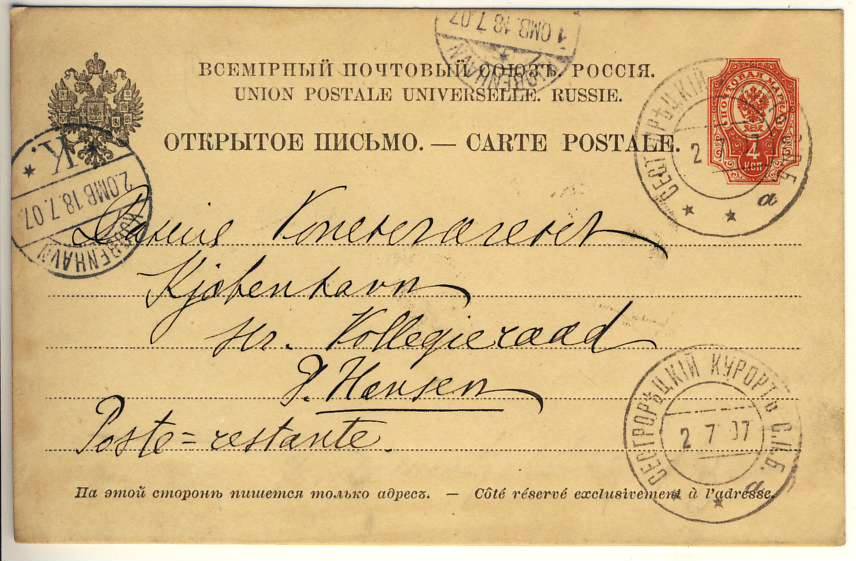 ВСЕМІРНЫЙ ПОЧТОВЫЙ СОЮЗЪ. РОССІЯ.
UNION POSTALE UNIVERSELLE. RUSSIE.
ОТКРЫТОЕ ПИСЬМО. — CARTE POSTALE.
ПОЧТОВАЯ МАРКА
4
КОП
1.OMB. 18.7.07
KJØBENHAVN
K.
2.OMB. 18.7.07
KJØBENHAVN
СЕСТРОРѢЦКІЙ С.П.Б.
2 7
а
Kjøbenhavn
Hr. Kollegieraad
P. Hansen
Poste=restante.
СЕСТРОРѢЦКІЙ КУРОРТЪ С.П.Б.
2 7 07
а
На этой сторонѣ пишется только адресъ. — Côté réservé exclusivement à l'adresse.